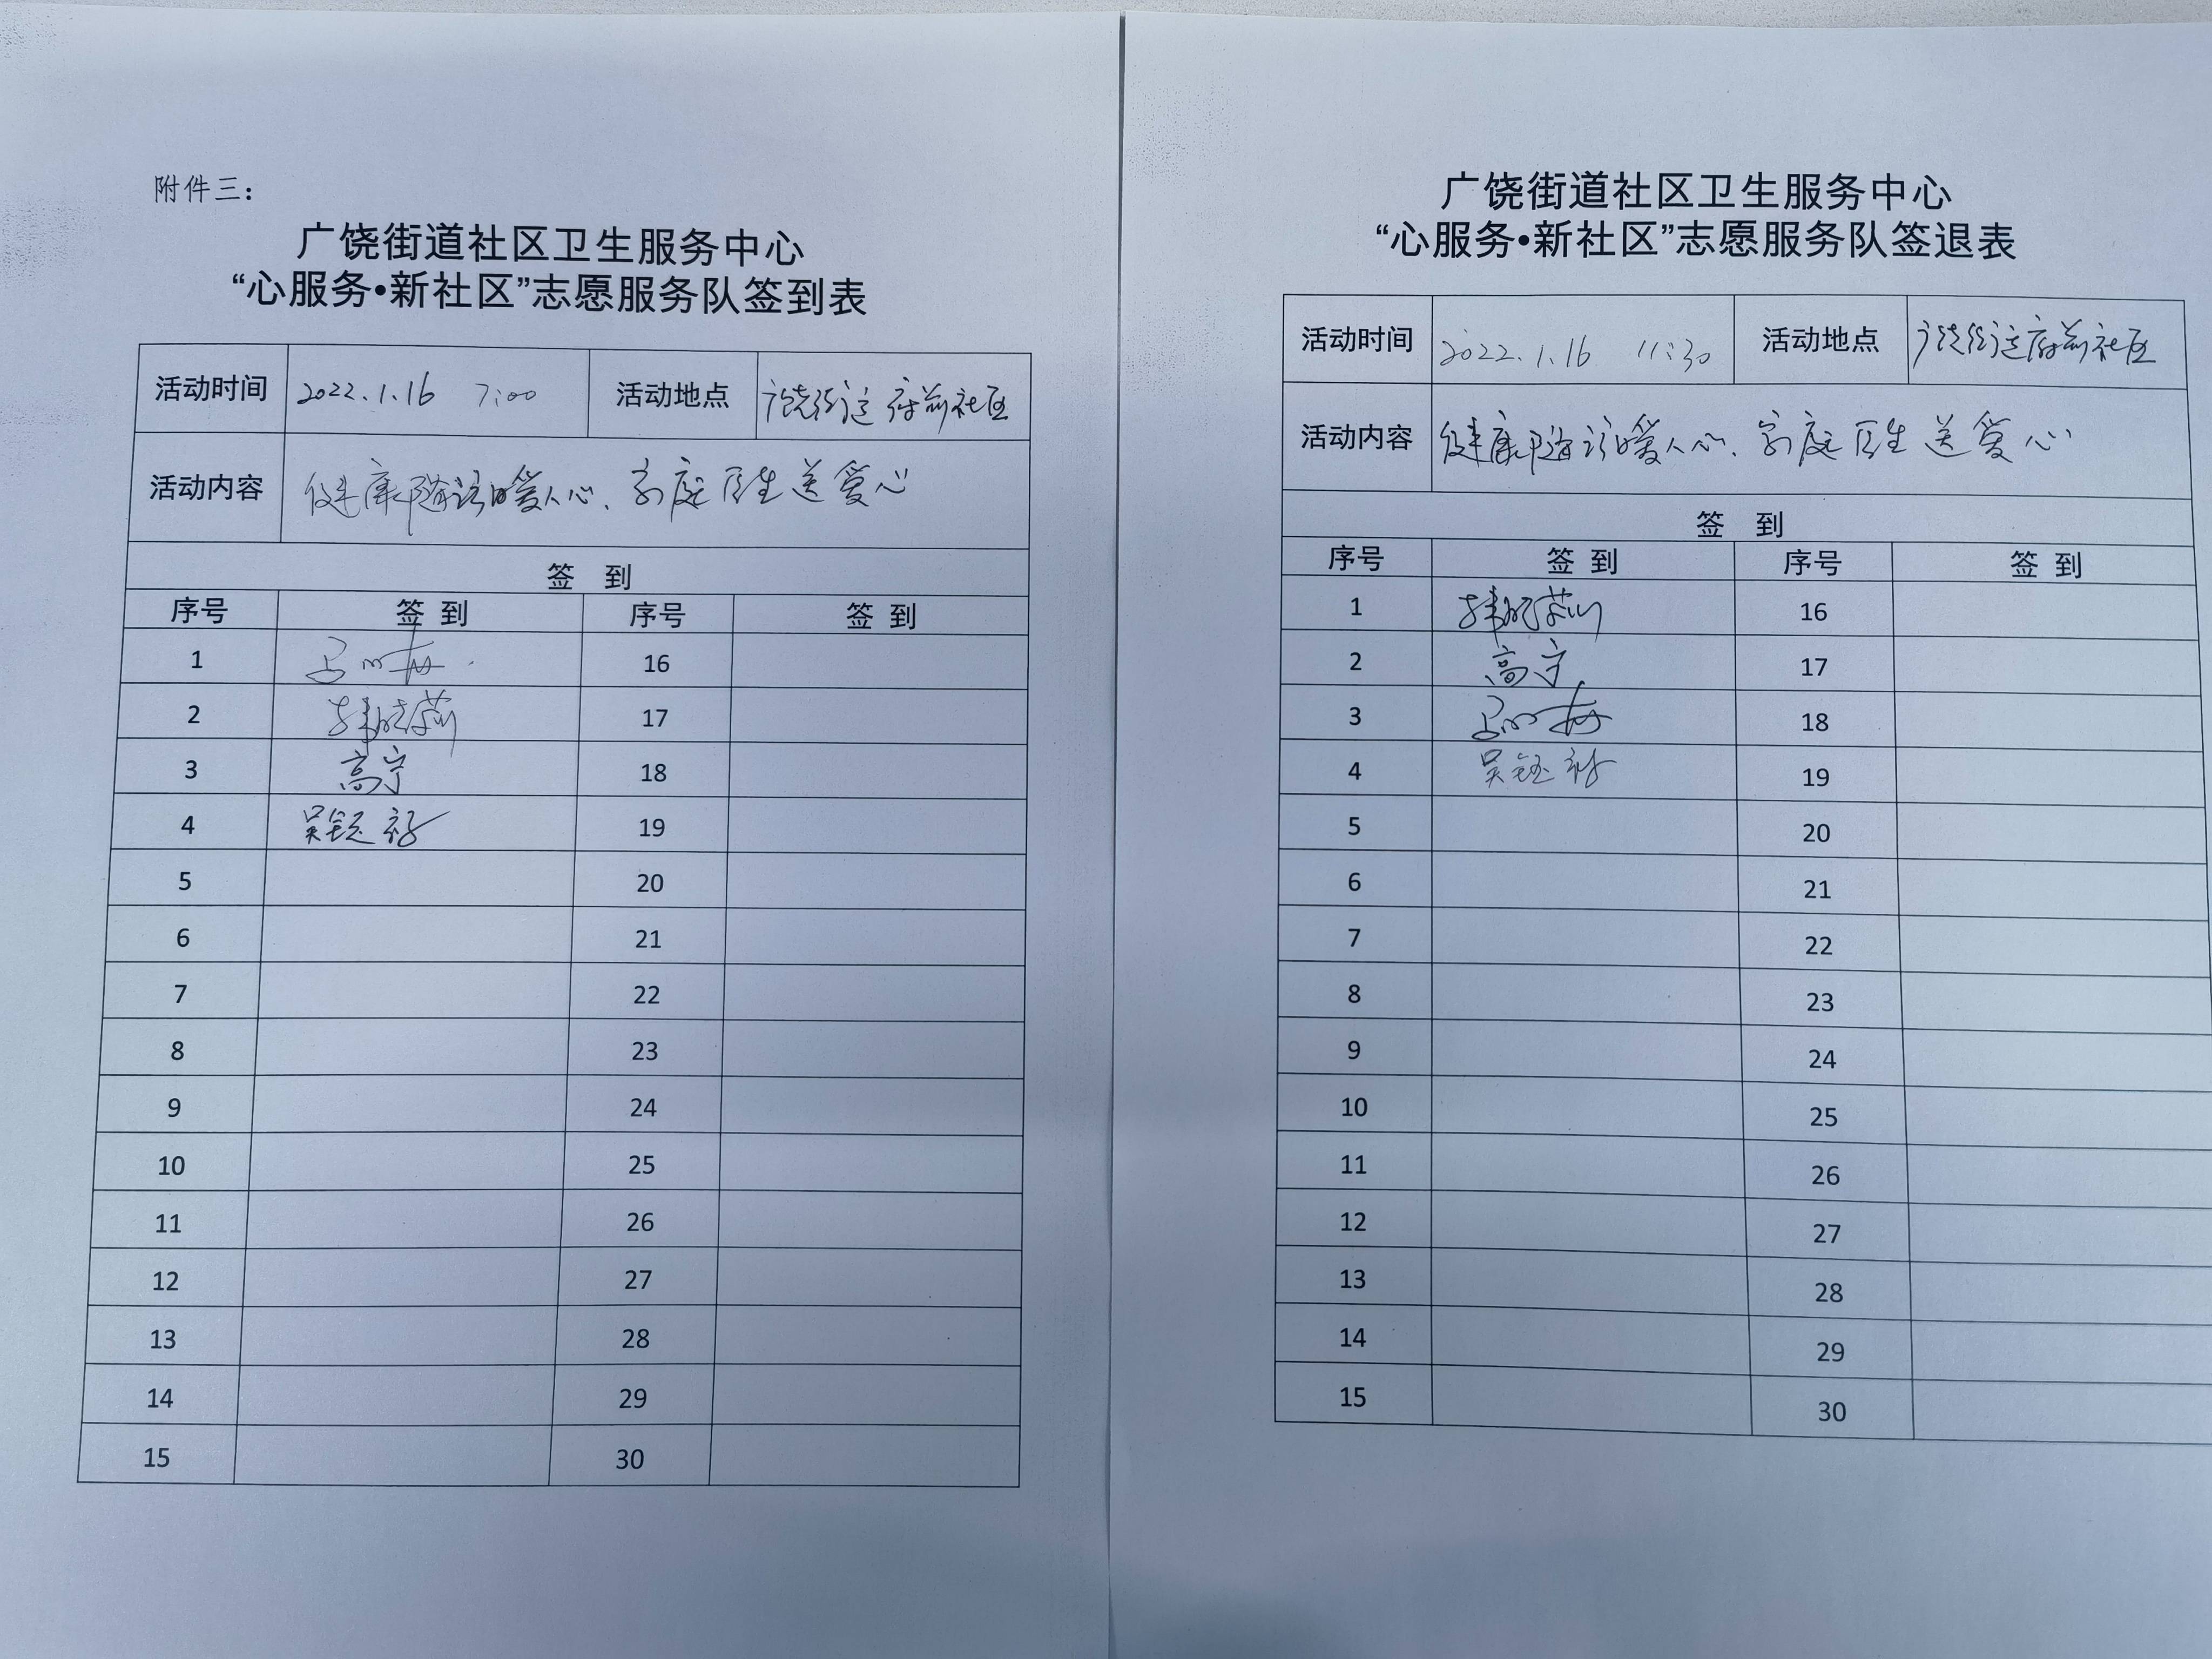 附件三：
广饶街道社区卫生服务中心
“心服务•新社区”志愿服务队签到表
活动时间 2022.1.16 7:00 活动地点 广饶街道府前社区
活动内容 健康随访暖人心、家庭医生送爱心
签 到
序号 签 到 序号 签 到
1 16
2 韩晓燕 17
3 高宁 18
4 吴钰 19
5 20
6 21
7 22
8 23
9 24
10 25
11 26
12 27
13 28
14 29
15 30
广饶街道社区卫生服务中心
“心服务•新社区”志愿服务队签退表
活动时间 2022.1.16 11:30 活动地点 广饶街道府前社区
活动内容 健康随访暖人心、家庭医生送爱心
签 到
序号 签 到 序号 签 到
1 韩晓燕 16
2 高宁 17
3 18
4 吴钰 19
5 20
6 21
7 22
8 23
9 24
10 25
11 26
12 27
13 28
14 29
15 30